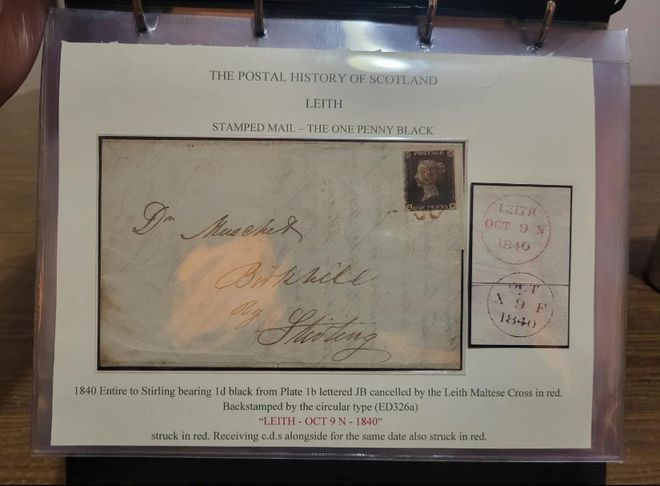 THE POSTAL HISTORY OF SCOTLAND
LEITH
STAMPED MAIL – THE ONE PENNY BLACK
POSTAGE
ONE PENNY
Dr Muschet
Birkhill
By
Stirling
LEITH
OCT 9 N
1840
OCT
X 9 F
1840
1840 Entire to Stirling bearing 1d black from Plate 1b lettered JB cancelled by the Leith Maltese Cross in red.
Backstamped by the circular type (ED326a)
"LEITH - OCT 9 N - 1840"
struck in red. Receiving c.d.s alongside for the same date also struck in red.